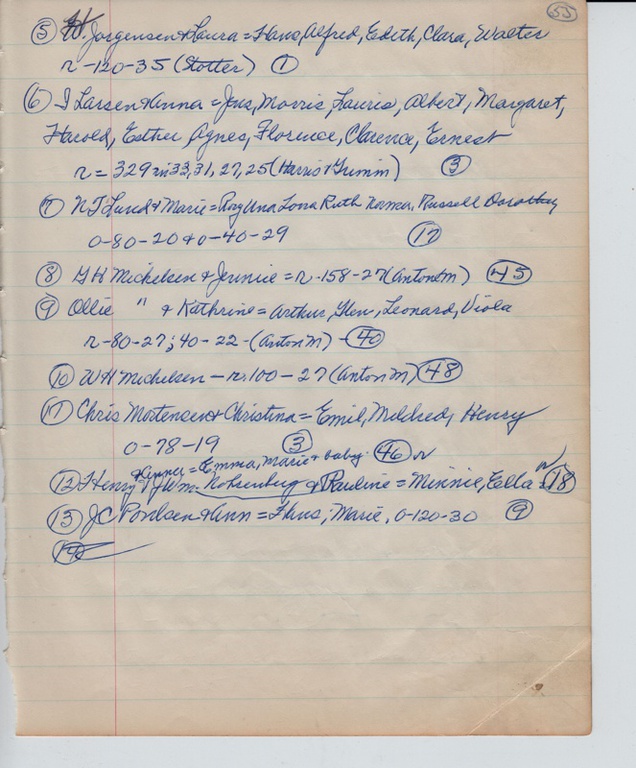 55
⑤ W. Jorgensen & Laura = Hans, Alfred, Edith, Clara, Walter
r-120-35 (Stotter) ①
⑥ I Larsen & Anna = Jas, Morris, Lauris, Albert, Margaret,
Harold, Esther, Agnes, Florence, Clarence, Ernest
r = 329 in 33, 31, 27, 25 (Harris & Grimm) ③
⑦ N.J. Lund & Marie = Ray Una Lora Ruth Norma, Russell Dorothy
0-80-20 & 0-40-29 ⑰
⑧ G H Mickelsen & Jennie = r-158-27 (Anton M) ㊺
⑨ Ollie " & Kathrine = Arthur, Glen, Leonard, Viola
r-80-27; 40-22-(Anton M) - ㊵
⑩ W H Mickelsen - r.100-27 (Anton M) ㊽
⑪ Chris Mortensen & Christina = Emil, Mildred, Henry
0-78-19 ③
& Anna = Emma, Marie & baby. ㊻ or
⑫ Henry & Wm. & Pauline = Minnie, Ella or ⑱
⑬ J C Poulsen & Ann = Hans, Marie, 0-120-30 ⑨
⑭